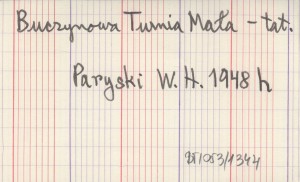 Buczynowa Turnia Mała – tat.
Paryski W. H. 1948 h
25/053/1344